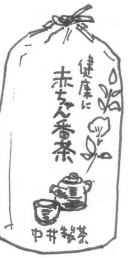 健康に
赤ちゃん番茶
中井製茶